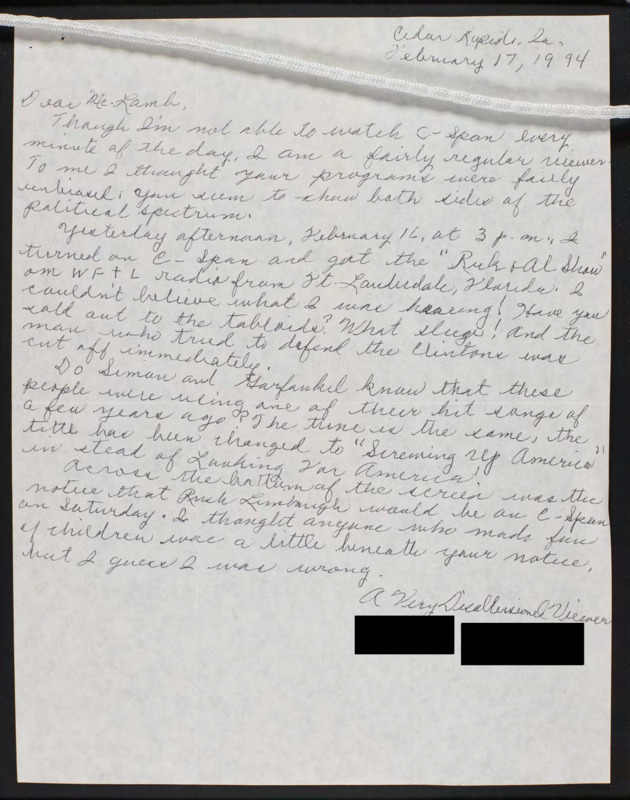 Cedar Rapids, Ia.
February 17, 1994
Dear Mr. Lamb,
Though I'm not able to watch C-Span every
minute of the day, I am a fairly regular viewer.
To me I thought your programs were fairly
unbiased; you seem to show both sides of the
political spectrum.
Yesterday afternoon, February 16, at 3 p.m., I
turned on C-Span and got the "Rick & Al Show"
on WFTL radio from Ft. Lauderdale, Florida. I
couldn't believe what I was hearing! Have you
sold out to the tabloids? What sleaze! And the
man who tried to defend the Clintons was
cut off immediately.
Do Simon and Garfunkel know that these
people were using one of their hit songs of
a few years ago? The tune is the same, the
title has been changed to "Screwing Up America"
in stead of Looking For America!
Across the bottom of the screen was the
notice that Rush Limbaugh would be on C-Span
on Saturday. I thought anyone who made fun
of children was a little beneath your notice,
but I guess I was wrong.
A Very Disallusioned Viewer